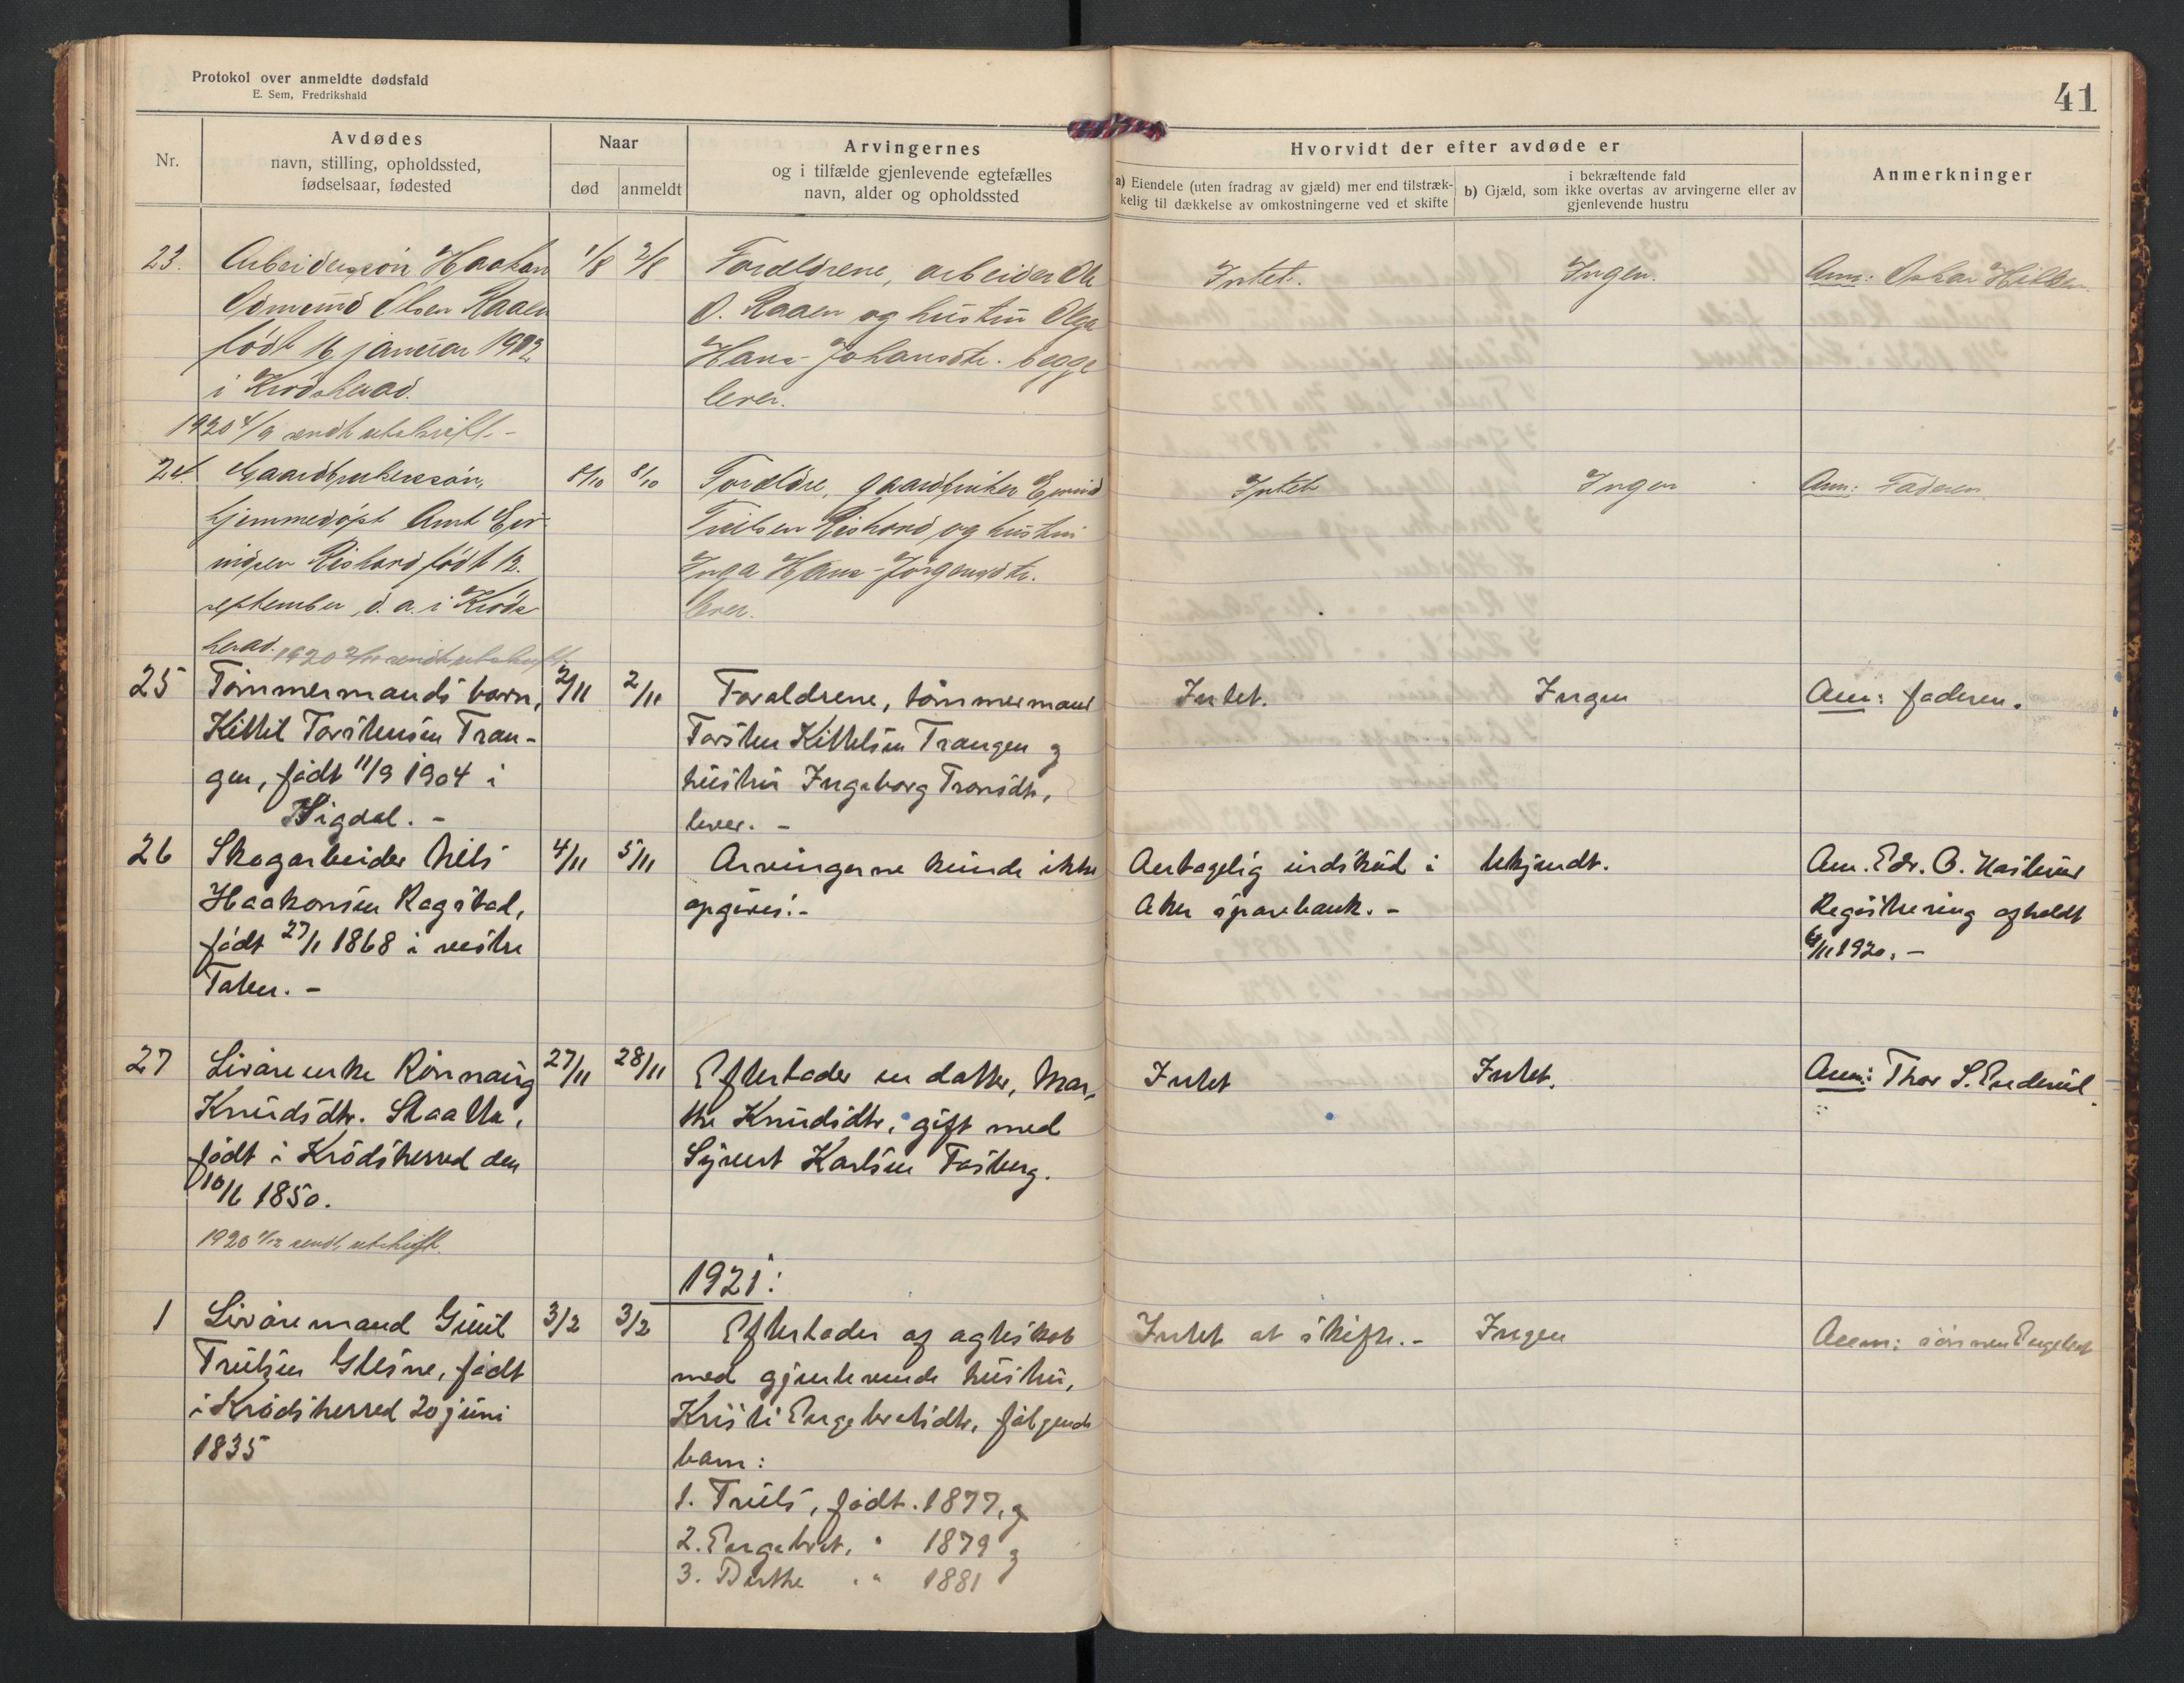 Protokol over anmeldte dødsfald
E. Sem, Fredrikshald
41
Nr.
Avdødes
navn, stilling, opholdssted,
fødselsaar, fødested
Naar
død
anmeldt
Arvingernes
og i tilfælde gjenlevende egtefælles
navn, alder og opholdssted
Hvorvidt der efter avdøde er
a) Eiendele (uten fradrag av gjæld) mer end tilstræk-
kelig til dækkelse av omkostningerne ved et skifte
i bekræftende fald
b) Gjæld, som ikke overtas av arvingerne eller av
gjenlevende hustru
Anmerkninger
23. Arbeidersøn Haakon 1/8 2/8 Forældrene, arbeider Ole Intet. Ingen. Anm: Oskar
Olsen Raaen O. Raaen og hustru Olga
født 16 januar 1902 Hans-Johansdtr. begge
i Krødsherad. lever.
1920 4/9 sendt utskrift.-
24. Gaardbrukersøn, 8/10 8/10 Forældre, gaardbruker Eivind Intet Ingen Anm: Faderen.
hjemmedøpt Arnt Eiv- Trulsen og hustru
indsen født 12. Inga Hans-Jørgensdtr.
september d.a. i Kröds- lever.
herad. 1920 2/11 sendt utskrift
25 Tömmermands barn, 2/11 2/11 Forældrene, tömmermand Intet. Ingen Anm: faderen.
Kittil Torstensen Tran- Torsten Kittelsen Trangen og
gen, født 11/9 1904 i hustru Ingeborg Tronsdtr,
Sigdal. - lever. -
26 Skogarbeider Nils 4/11 5/11 Arvingerne kunde ikke Antagelig indskud i bekjendt. Anm. Edv. O.
Haakonsen Ragstad, opgives.- Aker sparebank. - Registrering afholdt
født 27/1 1868 i vestre 6/11 1920. -
Toten. -
27 Livöreenke Rönnaug 27/11 28/11 Efterlader en datter, Mar- Intet Intet. Anm: Thor S.
Knudsdtr. the Knudsdtr, gift med
født i Krödsherred den Syvert Karlsen
10/6 1850.
1920 1/12 sendt utskrift.
1921:
1 Livöremand Guul 3/2 3/2 Efterlader af ægteskab Intet at skifte.- Ingen Anm: sönnen Engebret
Trulsen Glesne, født med gjenlevende hustru,
i Krödsherred 20 juni Kristi Engebretsdtr, følgende
1835 barn:
1. Truls, født. 1877, og
2. Engebret, " 1879 og
3. Berthe " 1881